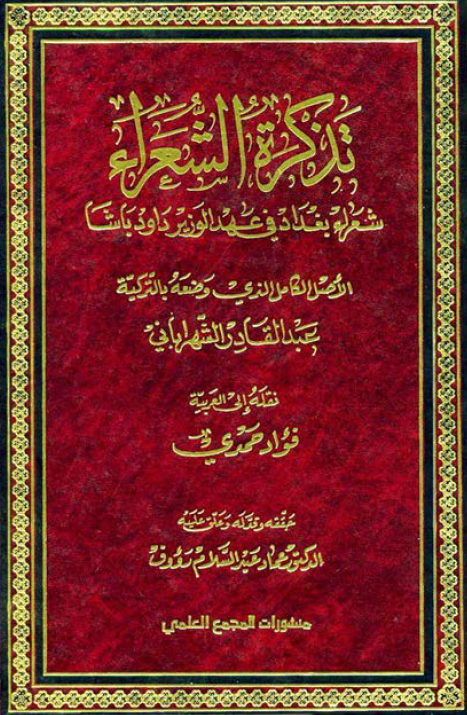 تذكرة الشُّعَرَاء
شعراء بغداد في عهد الوزير داود باشا
الأصل الكامل الذي وضعه بالتركية
عبد القادر الشهراباني
نقله إلى العربية
فؤاد حمدي
حققه وقدّم له وعلق عليه
الدكتور عماد عبد السلام رؤوف
منشورات المجمع العلمي